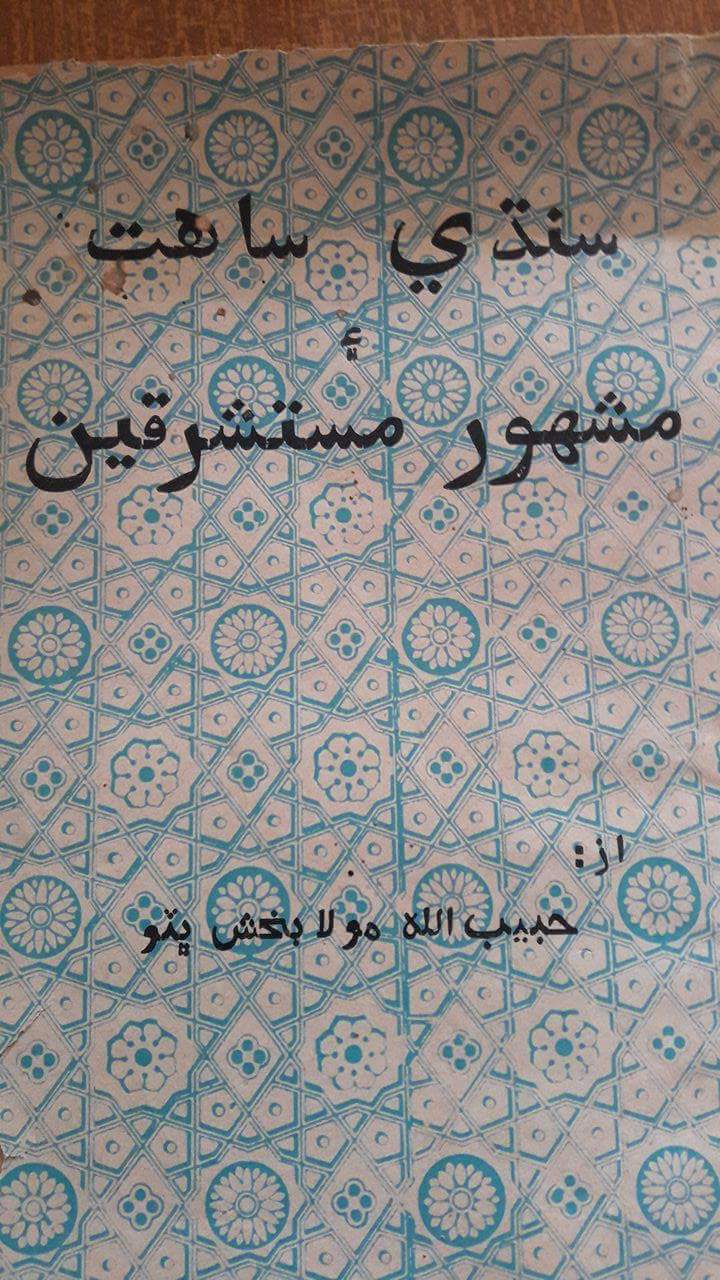 سنڌي ساهت
۽
مشهور مستشرقين
از:
حبيب الله مولا بخش ڀٽو